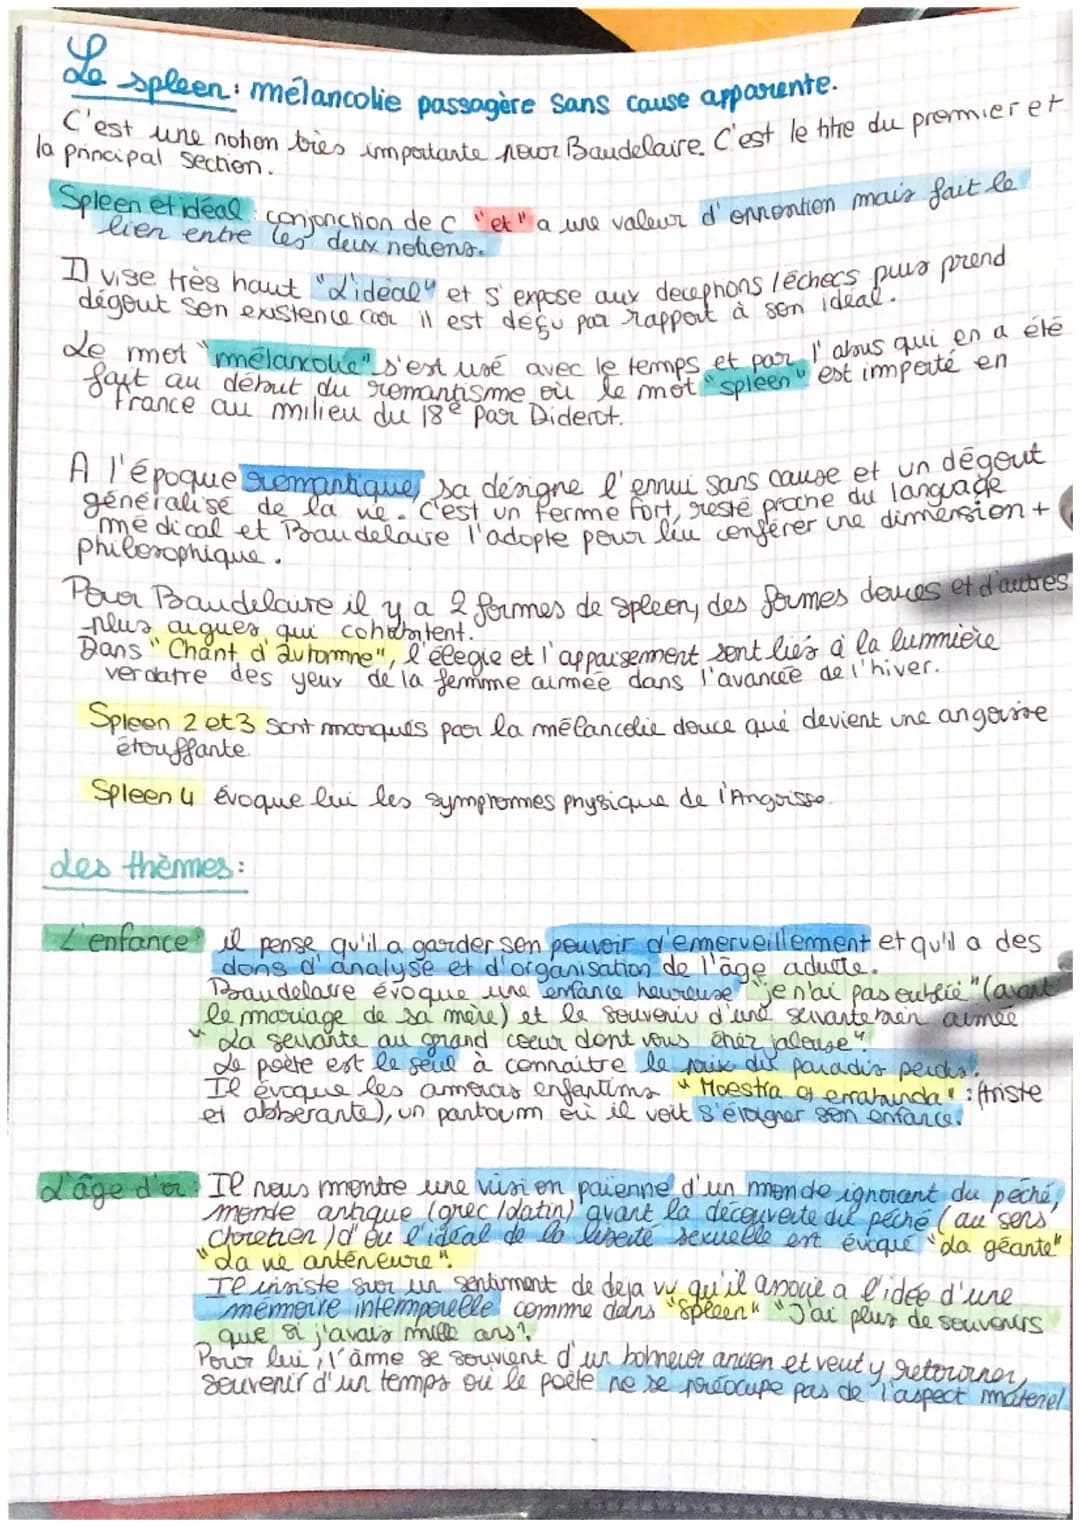 Le spleen: mélancolie passagère sans cause apparente.
C'est une notion très importante pour Baudelaire. C'est le titre du premier et
la principal section.
Spleen et idéal : conjonction de C "et" a une valeur d'opposition mais fait le
lien entre les deux notions.
Il vise très haut "L'idéal" et s'expose aux deceptions / échecs puis prend
dégout son existence car il est déçu par rapport à son idéal.
Le mot "mélancolie" s'est usé avec le temps et par l'abus qui en a été
fait au début du romantisme où le mot "spleen" est importé en
France au milieu du 18e par Diderot.
A l'époque romantique, sa désigne l'ennui sans cause et un dégout
généralisé de la vie. C'est un terme fort, resté proche du language
médical et Baudelaire l'adopte pour lui conférer une dimmension +
philosophique.
Pour Baudelaire il y a 2 formes de spleen, des formes douces et d'autres
plus aigues qui cohabitent.
Dans "Chant d'automne", l'élegie et l'appaisement sont liés à la lummière
verdatre des yeux de la femme aimée dans l'avancée de l'hiver.
Spleen 2 et 3 sont marqués par la mélancolie douce qui devient une angoisse
étouffante.
Spleen 4 évoque lui les symptomes physique de l'Angoisse.
Les thèmes :
L'enfance : il pense qu'il a garder son pouvoir d'emerveillement et qu'il a des
dons d'analyse et d'organisation de l'âge adulte.
Baudelaire évoque une enfance heureuse "je n'ai pas oublié" (avant
le mariage de sa mère) et le souvenir d'une servante bien aimée
"La servante au grand coeur dont vous étiez jalouse".
Le poète est le seul à connaitre le prix du paradis perdu.
Il évoque les amours enfantins "Moesta et errabunda" : (triste
et abberante), un pantoum où il voit s'éloigner son enfance.
L'âge d'or : Il nous montre une vision paienne d'un monde ignorant du péché,
monde antique (grec / latin) avant la découverte du péché (au sens
chretien) d'où l'idéal de la liberté sexuelle est évoqué "La géante"
"La vie antérieure".
Il insiste sur un sentiment de deja vu qu'il associe a l'idée d'une
mémoire intemporelle comme dans "Spleen" "J'ai plus de souvenirs
que si j'avais mille ans".
Pour lui, l'âme se souvient d'un bohneur ancien et veut y retourner,
souvenir d'un temps où le poète ne se préocupe pas de l'aspect materiel